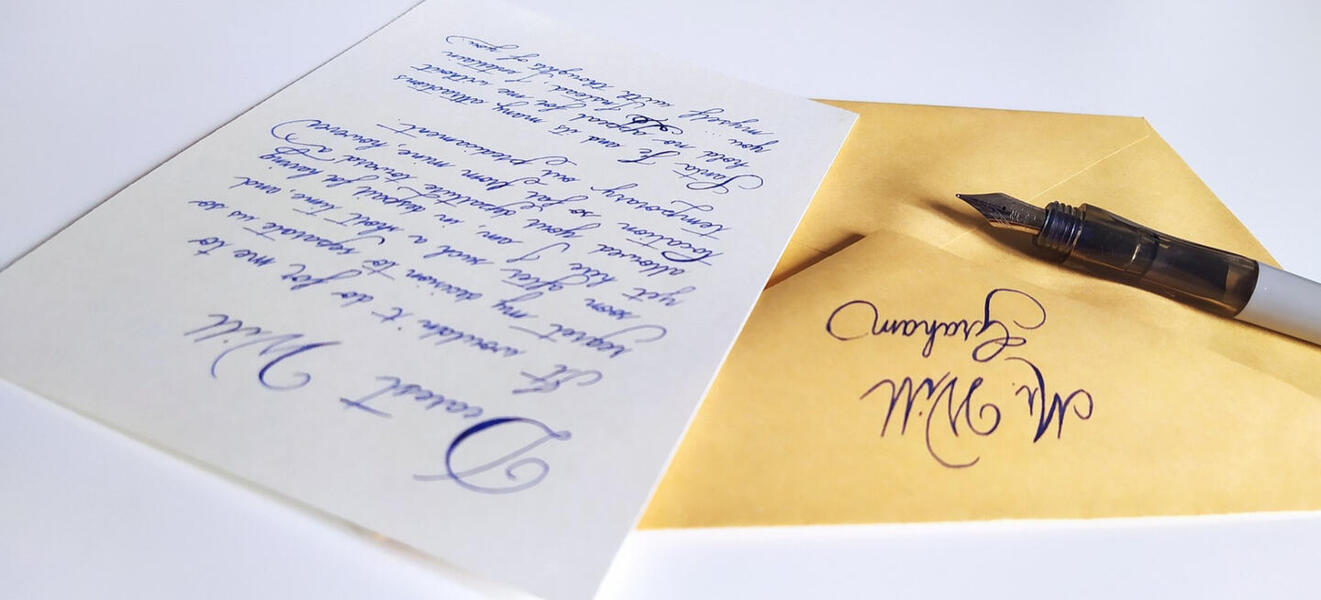 Dearest Will
It wouldn't do for me to
regret my decision to separate us so
soon after such a short time, and
yet here I am, in despair for having
allowed your toward a
location so far from mine, however
temporary our predicament.
Santa Fe and its many attractions
hold no appeal for me without
you... Instead, I entertain
myself with thoughts of you
Mr. Will
Graham